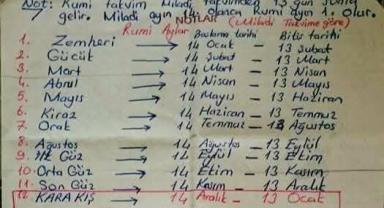 Not: Rumi takvim Miladi takvimden 13 gün sonra
gelir. Miladi ayın 14 olunca Rumi ayın 1. olur.
NOTLAR (Miladi Takvime göre)
Rumi Aylar Başlama tarihi Bitiş tarihi
1. Zemheri → 14 Ocak - 13 Şubat
2. Gücük → 14 Şubat - 13 Mart
3. Mart → 14 Mart - 13 Nisan
4. Abrul → 14 Nisan - 13 Mayıs
5. Mayıs → 14 Mayıs - 13 Haziran
6. Kiraz → 14 Haziran - 13 Temmuz
7. Orak → 14 Temmuz - 13 Ağustos
8. Ağustos → 14 Ağustos - 13 Eylül
9. İlk Güz → 14 Eylül - 13 Ekim
10. Orta Güz → 14 Ekim - 13 Kasım
11. Son Güz → 14 Kasım - 13 Aralık
12. KARA KIŞ → 14 Aralık - 13 Ocak